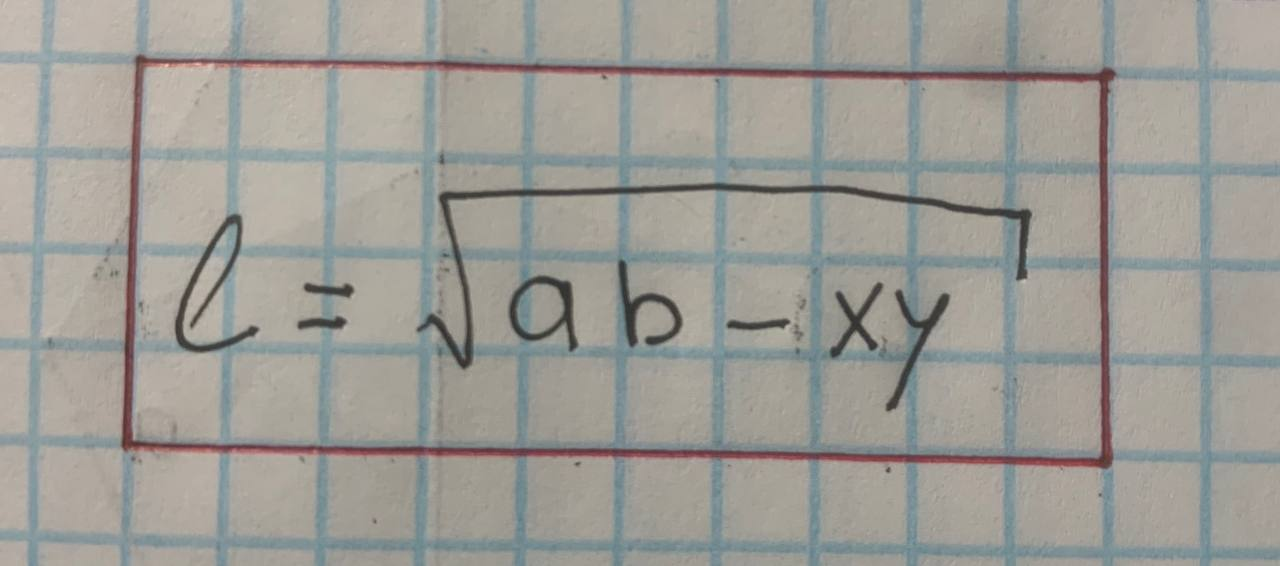 ℓ = √(ab - xy)